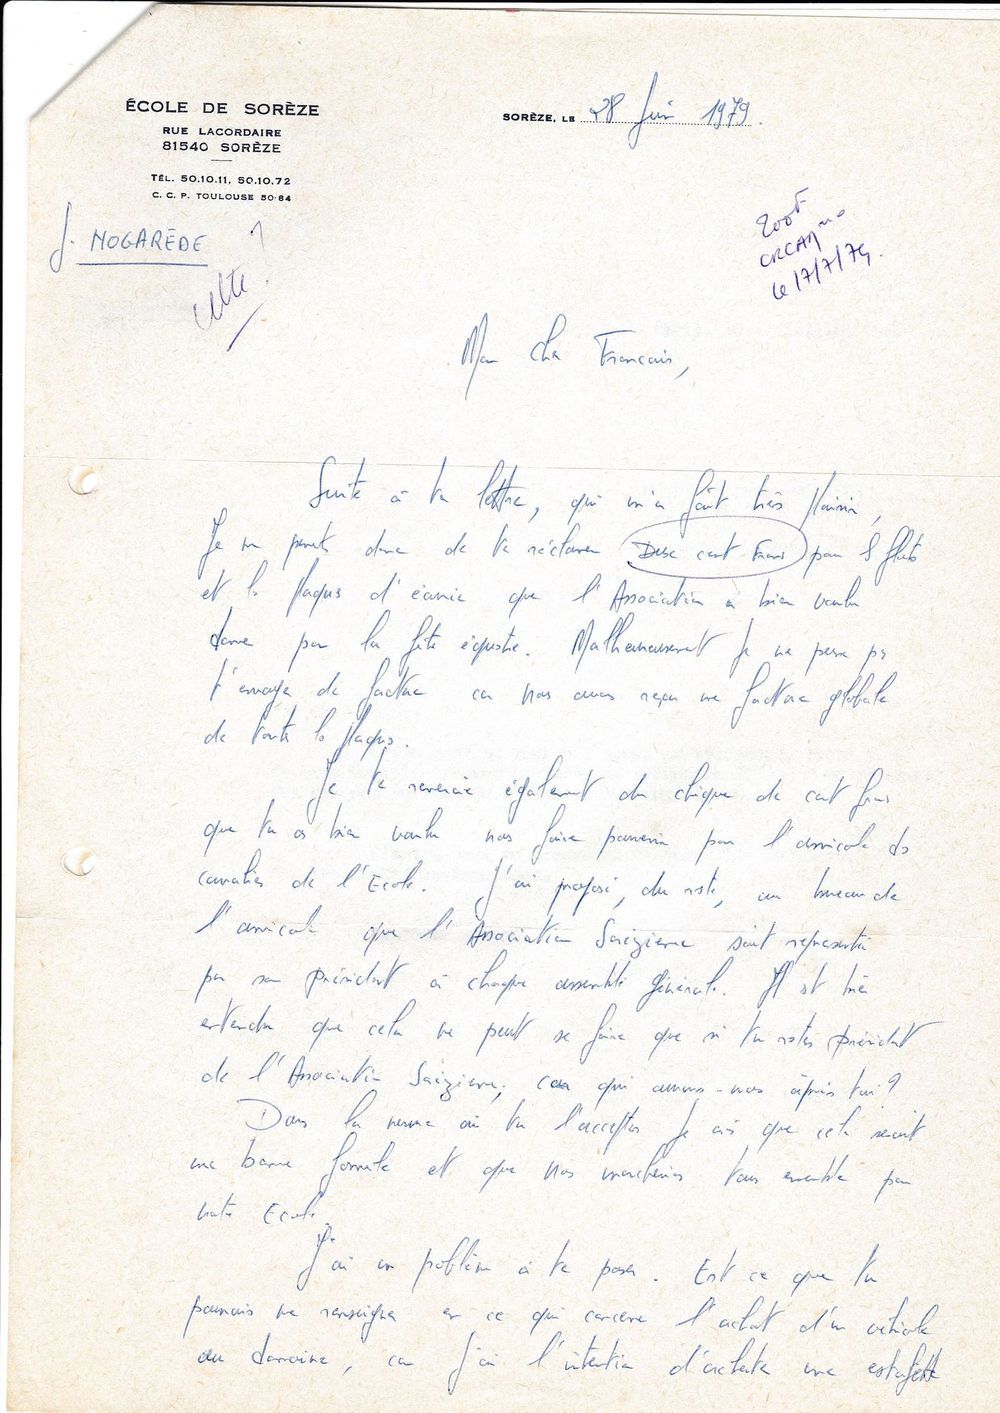 ÉCOLE DE SORÈZE
RUE LACORDAIRE
81540 SORÈZE
TÉL. 50.10.11, 50.10.72
C. C. P. TOULOUSE 50-84
SORÈZE, LE 28 Juin 1979.
J. NOGARÈDE
200F
CRCAM
le 17/7/79.
Mon cher Français,
Suite à ta lettre, qui m'a fait très plaisir,
Je me permets donc de te réclamer Deux cent Francs pour 8 flots
et les plaques d'écurie que l'Association a bien voulu
donner pour la fête équestre. Malheureusement Je ne peux pas
t'envoyer de facture car nous avons reçu une facture globale
de toutes les plaques.
Je te remercie également du chèque de cent francs
que tu as bien voulu nous faire parvenir pour l'amicale des
cavaliers de l'Ecole. J'ai proposé, du reste, au bureau de
l'amicale que l'Association Sorézienne soit représentée
par son Président à chaque assemblée générale. Il est bien
entendu que cela ne peut se faire que si tu restes président
de l'Association Sorézienne, car qui aurons-nous après toi?
Dans la mesure où tu l'acceptes Je crois que cela serait
une bonne formule et que nous marcherions tous ensemble pour
notre Ecole.
J'ai un problème à te poser. Est ce que tu
pourrais me renseigner en ce qui concerne l'achat d'un véhicule
au domaine, car j'ai l'intention d'acheter une estafette